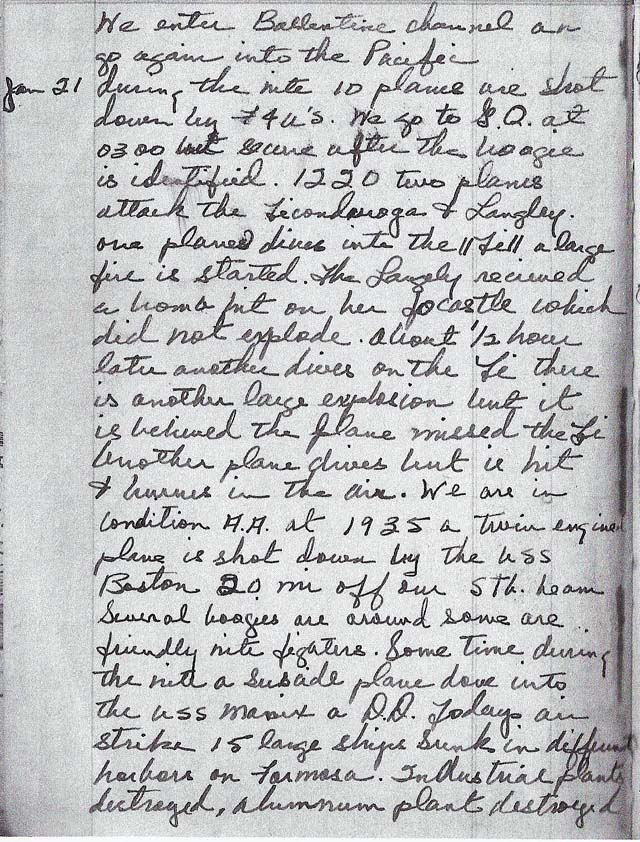 We enter Ballentine channel an
go again into the Pacific
Jan 21 during the nite 10 planes are shot
down by F4U's. We go to G.Q. at
0300 but secure after the boogie
is identified. 1220 two planes
attack the Ticonderoga & Langley.
one planes dives into the "Ti" a large
fire is started. The Langely recieved
a bomb hit on her focastle which
did not explode. about 1/2 hour
later another dives on the Ti there
is another large explosion but it
is believed the plane missed the Ti
Another plane dives but is hit
& burnes in the air. We are in
condition A.A. at 1935 a twin engined
plane is shot down by the USS
Boston 20 mi off our STb. beam
Several boogies are around some are
friendly nite fighters. Some time during
the nite a susade plane dove into
the USS Manix a D.D. Todays air
strike 15 large ships sunk in different
harbors on Formosa. Industrial plants
destroyed, alumnum plant destroyed